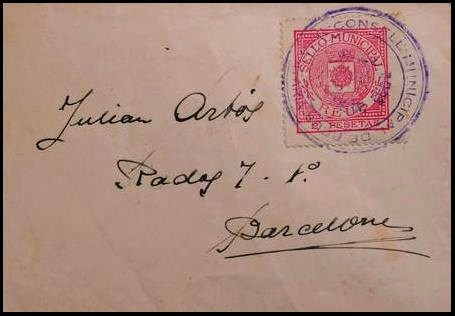 CONSELL MUNICIPAL DE
SELLO MUNICIPAL
REUS
2 PESETAS
Julian Artós
Rades 7. 1º
Barcelona